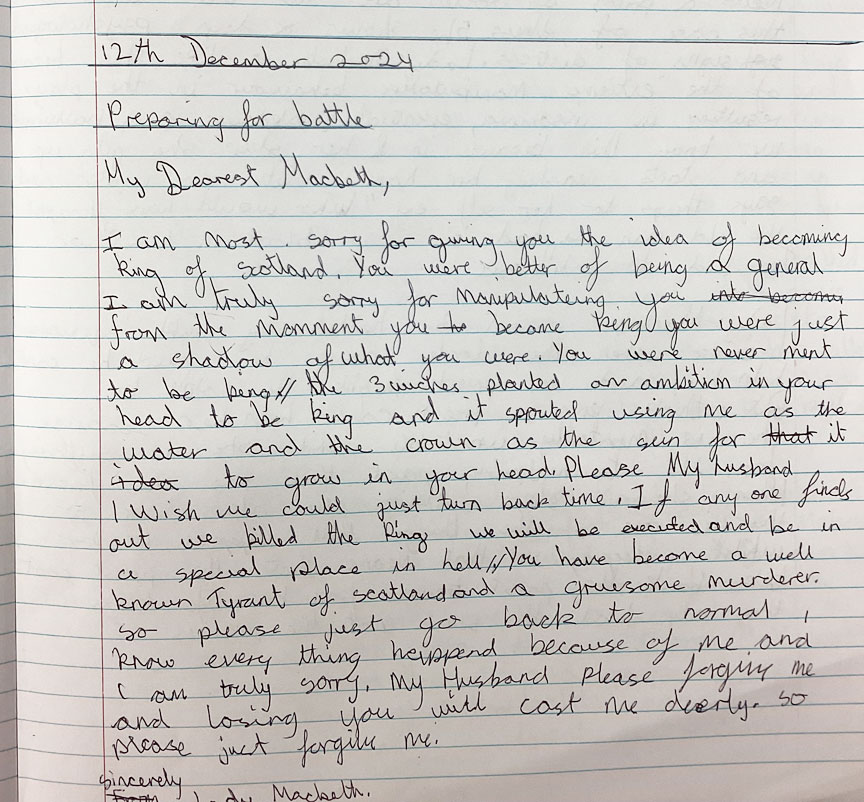 12th December 2024
Preparing for battle
My Dearest Macbeth,
I am most. sorry for giving you the idea of becoming
king of scotland. You were better of being a general
I am truly sorry for manipulateing you into becoming
from the momment you to became king you were just
a shadow of what you were. You were never ment
to be being// the 3 wiches planted an ambition in your
head to be king and it sprouted using me as the
water and the crown as the sun for that it
idea to grow in your head. Please My husband
I wish we could just turn back time. If any one finds
out we killed the king we will be executed and be in
a special place in hell // You have become a well
known Tyrant of scotland and a gruesome murderer.
so please just go back to normal, I
know every thing heippend because of me and
I am truly sorry. My Husband Please forgive me
and losing you will cost me deerly. so
please just forgive me.
sincerely
From Lady Macbeth.